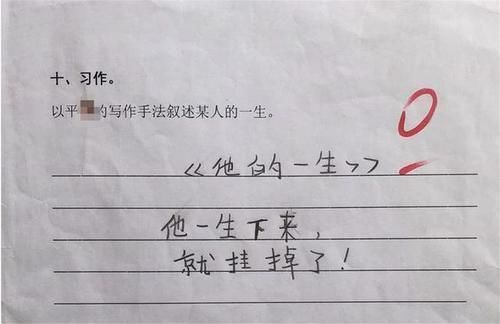 十、习作。
以平的写作手法叙述某人的一生。
0
《他的一生》
他一生下来,
就挂掉了!